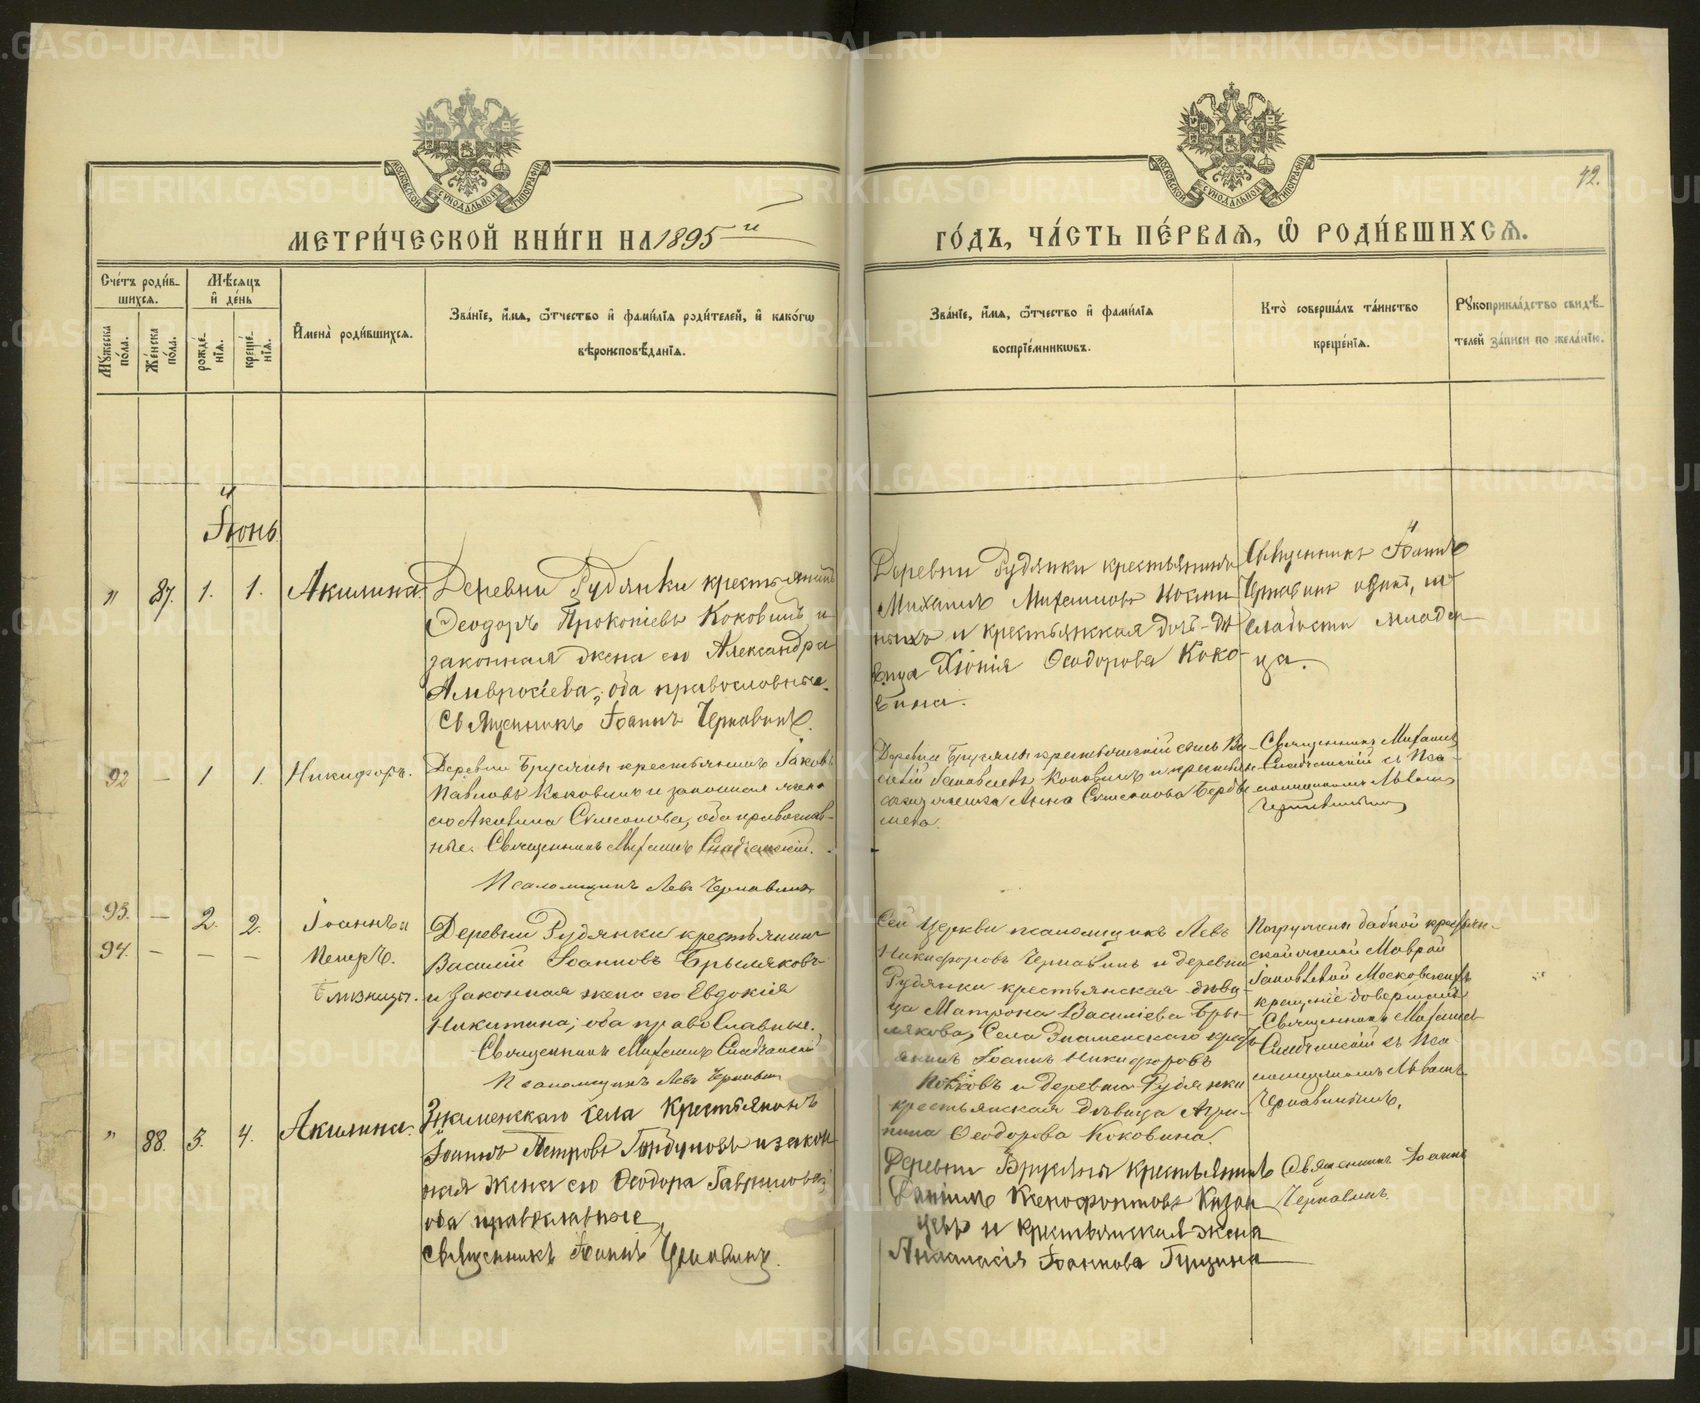 42.
МЕТРИ́ЧЕСКОЙ КНИ́ГИ НА 1895 й
ГО́ДЪ, ЧА́СТЬ ПЕ́РВАЯ, Ѡ РОДИ́ВШИХСЯ.
МОСКОВСКОЙ СѴНОДАЛЬНОЙ ТИПОГРАФІИ
МОСКОВСКОЙ СѴНОДАЛЬНОЙ ТИПОГРАФІИ
Сче́тъ роди́в-
шихся.
Мѣсяцъ
и҆ де́нь
Мꙋ́жеска по́ла.
Же́нска по́ла.
рожде́-
нїя.
креще́-
нїя.
И҆мена̀ роди́вшихся.
Зва́нїе, и҆́мя, ѻ҆́тчество и҆ фами́лїя роди́телей, и҆ како́гѡ
вѣроисповѣ́данїя.
Зва́нїе, и҆́мя, ѻ҆́тчество и҆ фами́лїя
воспрїе́мникѡвъ.
Кто̀ соверша́лъ та́инство
креще́нїя.
Рꙋкоприкла́дство свидѣ́-
телей за́писи по жела́нїю.
Іюнь
" 87. 1. 1. Акилина
Деревни Рудянки крестьянинъ
Ѳеодоръ Прокопіевъ Коковинъ и
законная жена его Александра
Амвросіева, оба православные.
Священникъ Іоаннъ Чернавинъ.
Деревни Рудянки крестьянинъ
Михаилъ
и крестьянская дочь-дѣ
вица Хіонія Ѳеодорова Коко-
вина.
Священникъ Іоаннъ
Чернавинъ одинъ, по
слабости младен
ца.
92 — 1 1. Никифоръ.
Деревни Брусяны крестьянинъ Іаковъ
Павловъ Коковинъ и законная жена
его Акилина Симеонова, оба православ-
ные. Священникъ Михаилъ
Псаломщикъ Левъ Чернавинъ
Деревни Брусяны крестьянскій сынъ Ва-
силій Іаковлевъ Коковинъ и крестьян
ская Анна Симеонова
Священникъ Михаилъ
съ Пса-
ломщикомъ Львомъ
Чернавинымъ
93. — 2. 2. Іоаннъ и
94. — — — Петръ.
близнецы.
Деревни Рудянки крестьянинъ
Василій Іоанновъ Брылаковъ
и законная жена его Евдокія
Никитина; оба православные.
Священникъ Михаилъ
Псаломщикъ Левъ Чернавинъ
Сей церкви псаломщикъ Левъ
Никифоровъ Чернавинъ и деревни
Рудянки крестьянская дѣви-
ца Матрона Василіева Бры-
лакова, Села Знаменскаго крест
янинъ Іоаннъ Никифоровъ
и деревни Рудянки
крестьянская дѣвица Агри-
пина Ѳеодорова Коковина.
Погружены бабкой крестьян-
ской женой Маврой
Іаковлевой
крещеніе довершилъ
Священникъ Михаилъ
съ Пса-
ломщикомъ Львомъ
Чернавинымъ.
" 88. 3. 4. Акилина.
Знаменскаго села Крестьянинъ
Іоаннъ Петровъ и закон
ная жена его Ѳеодора Гаврилова,
оба православные
Священникъ Іоаннъ Чернавинъ.
Деревни Брусяны Крестьянинъ
Ксенофонтовъ Казан
цевъ и крестьянская жена
Анастасія Іоаннова
Священникъ Іоаннъ
Чернавинъ.
METRIKI.GASO-URAL.RU